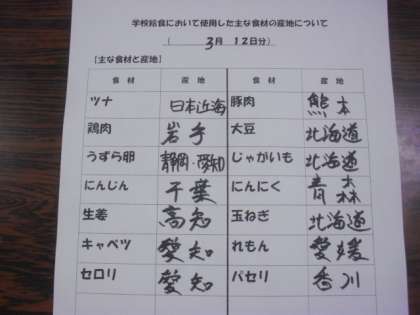 学校給食において使用した主な食材の産地について
( 3月 12日分)
[主な食材と産地]
食材 産地 食材 産地
ツナ 日本近海 豚肉 熊本
鶏肉 岩手 大豆 北海道
うずら卵 静岡・愛知 じゃがいも 北海道
にんじん 千葉 にんにく 青森
生姜 高知 玉ねぎ 北海道
キャベツ 愛知 れもん 愛媛
セロリ 愛知 パセリ 香川